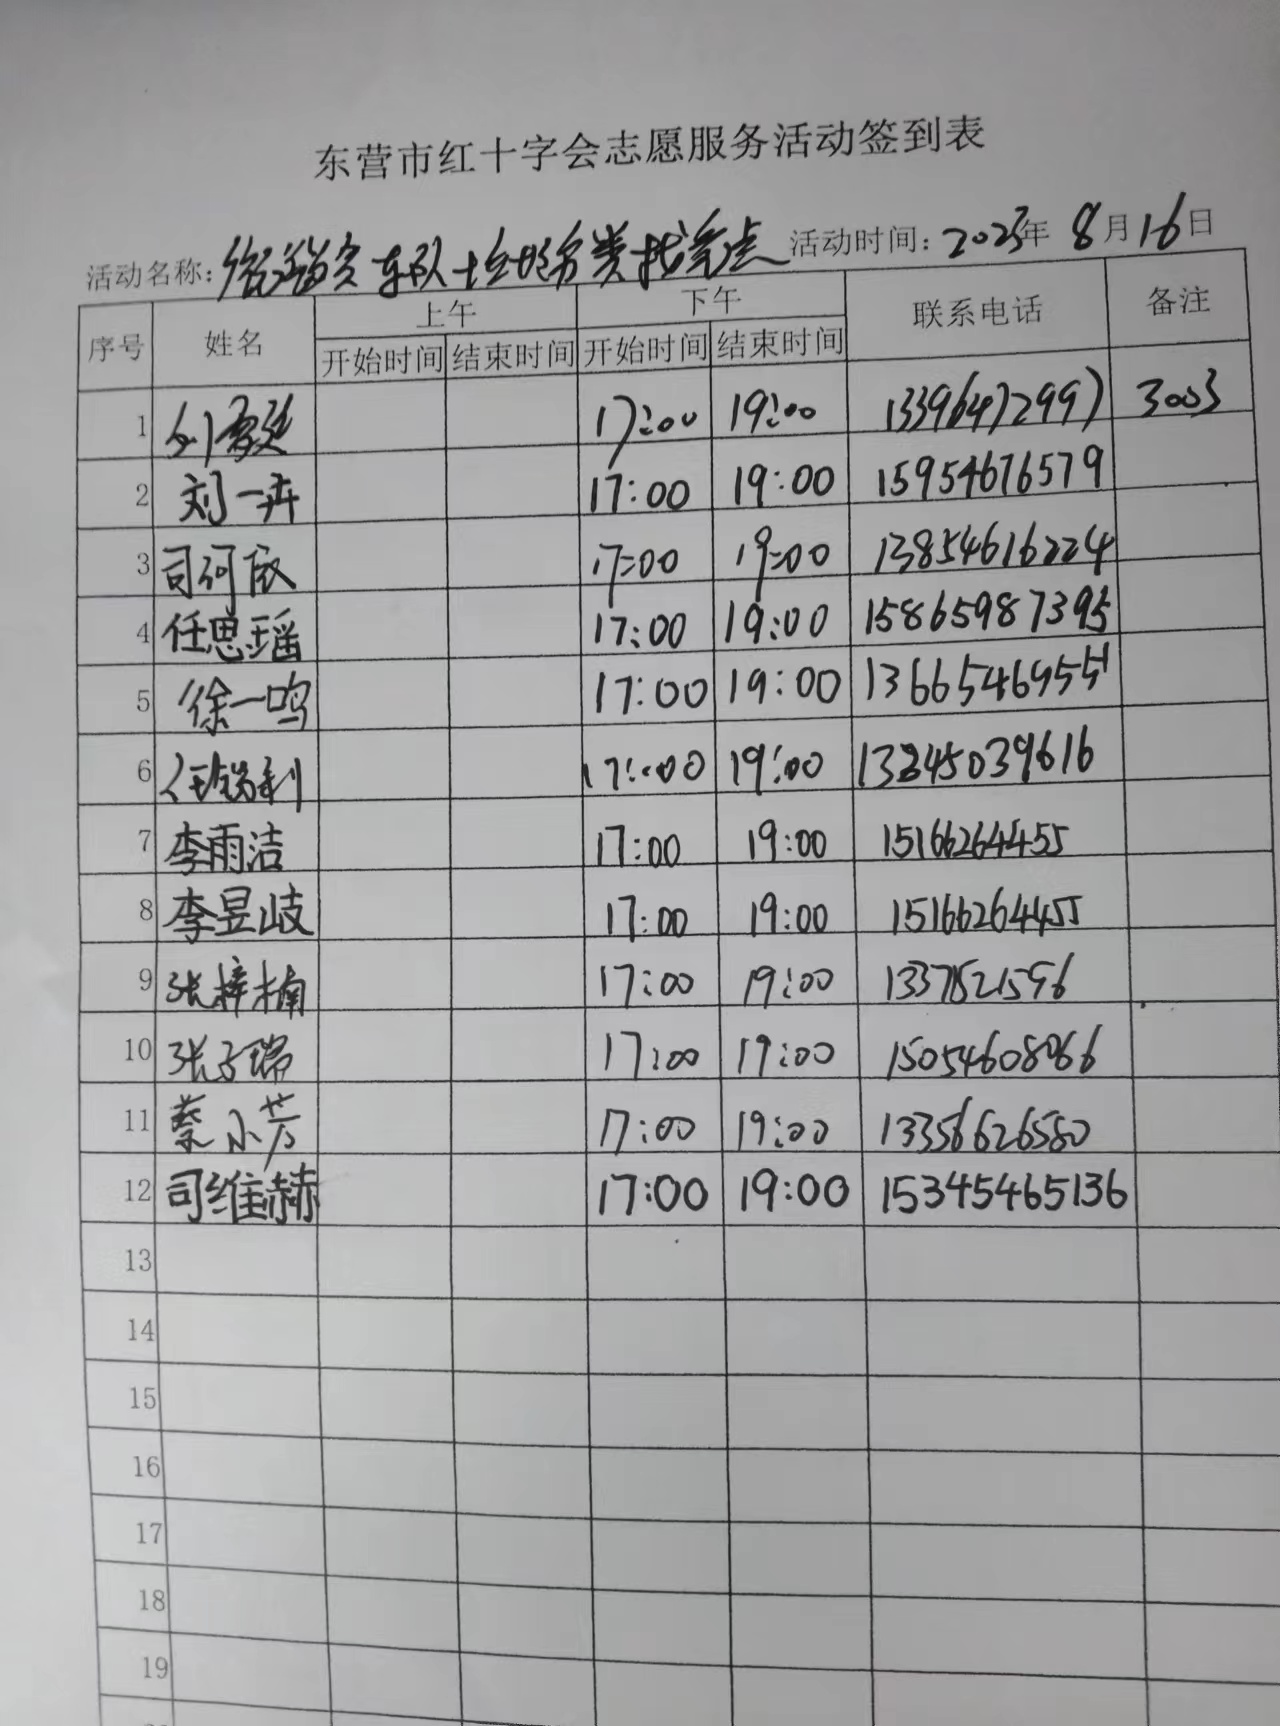 东营市红十字会志愿服务活动签到表
活动名称: 车队垃圾分类找亮点 活动时间: 2023年 8月16日
序号 姓名 上午 下午 联系电话 备注
开始时间 结束时间 开始时间 结束时间
1 刘 17:00 19:00 13396472997 3003
2 刘一卉 17:00 19:00 15954676579
3 司珂依 17:00 19:00 13854616224
4 任思瑶 17:00 19:00 15865987395
5 徐一鸣 17:00 19:00
6 17:00 19:00 13245039616
7 李雨洁 17:00 19:00 15166264455
8 李昱岐 17:00 19:00 15166264455
9 张梓楠 17:00 19:00 13371521596
10 张子瑞 17:00 19:00 15054608066
11 蔡小芳 17:00 19:00 13356626580
12 司维赫 17:00 19:00 15345465136
13
14
15
16
17
18
19